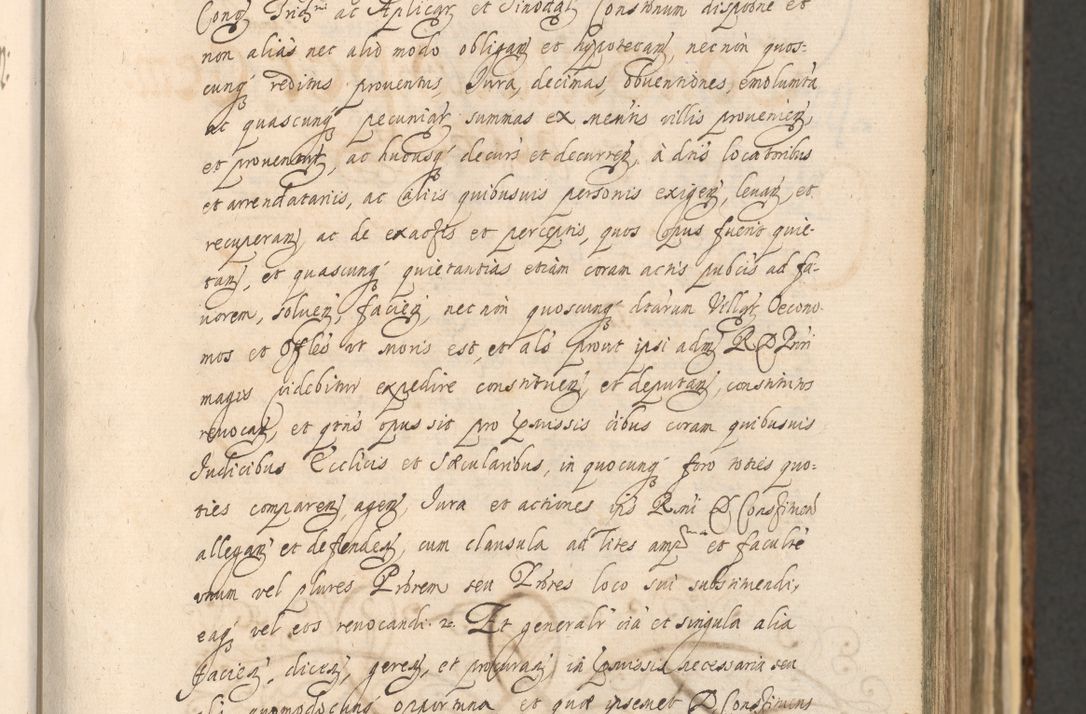 Conq Tridni ac Aplicar et Sinodal Constnum dispone et
non alias nec alio modo obligan et hypotecan, nec non quos=
cunq reditus proventus, Iura, decimas, obventiones, emolumta
ac quascunq pecuniar summas ex mentis villis provenien,
et provenint, ac hucusq decurs et decurren, à dnis locatoribus
et arrendatariis, ac aliis quibusuis personis exigen, levan, et
recuperan, ac de exactis et perceptis, quos opus fuerit quie-
tan, et quascunq quietantias etiam coram actis pubcis ad fa-
vorem, solven, facien, nec non quoscunq dtarum Villar, Oecono-
mos et Offles vt moris est, et als prout ipsi adm R D Prori
magis videbitur expedire constituen, et deputan, constitutos
revocan, et qtnс opus sit pro pmissis oibus coram quibusuis
Iudicibus Ecclicis et Sæcularibus, in quocunq foro toties quo=
ties comparen, agen, Iura et actiones ipis Rmi D Constituen
allegan et deffenden, cum clausula ad lites ampl et facultе
vnum vel plures Prorem seu Prores loco sui substituendi,
eaq vel eos revocandi. 2c. Et generalr oia et singula alia
facien, dicen, geren, et procuran, in pmissis necessaria seu
ali quomodocunq oportuna et quæ ipsemet D Constituens